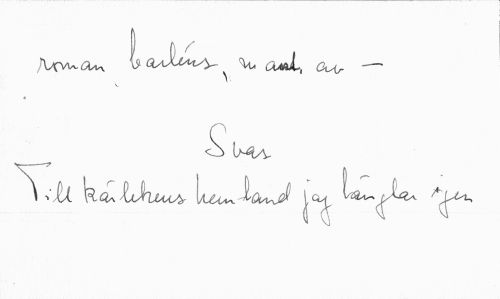 roman, barléns, mask. av —
Svas
Till kärlekens hemland jag längtar igen